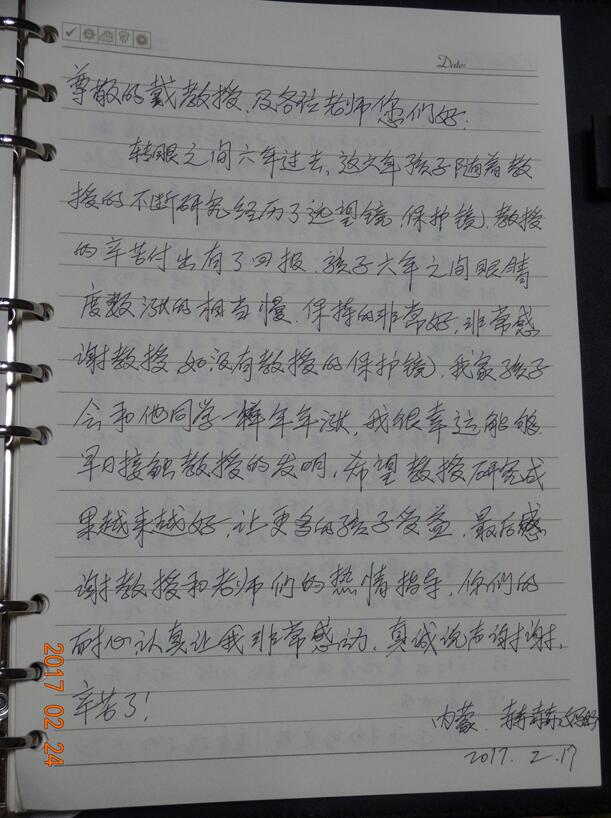 Date:
尊敬的戴教授、及各位老师您们好:
转眼之间六年过去、这六年孩子随着教
授的不断研究经历了远望镜、保护镜、教授
的辛苦付出有了回报、孩子六年之间眼睛
度数涨的相当慢、保持的非常好、非常感
谢教授、如没有教授的保护镜、我家孩子
会和他同学一样年年涨、我很幸运能够
早日接触教授的发明、希望教授研究成
果越来越好、让更多的孩子受益、最后感
谢教授和老师们的热情指导、你们的
耐心认真让我非常感动、真诚说声谢谢、
辛苦了!
内蒙、赫赫妈妈
2017.2.17
2017 02 24